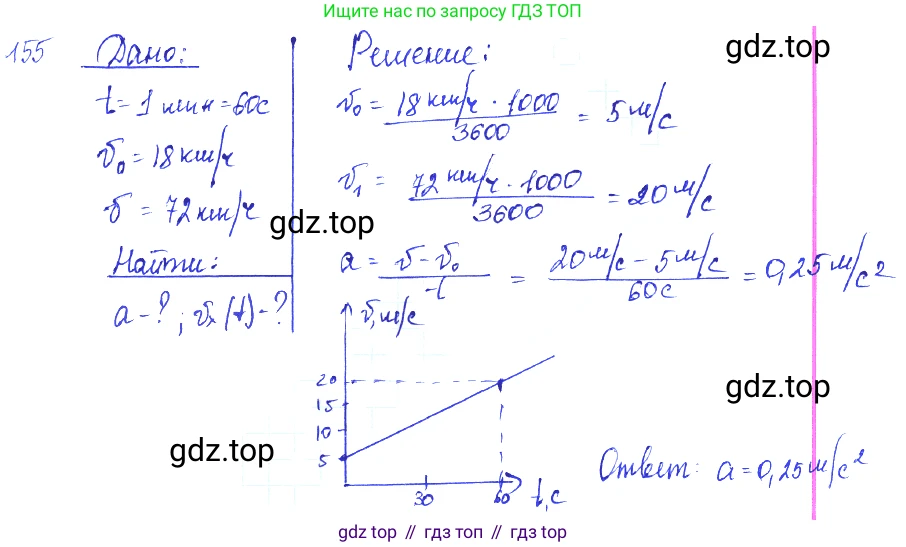 Ищите нас по запросу ГДЗ ТОП
155 Дано:
t = 1 мин = 60с
v₀ = 18 км/ч
v = 72 км/ч
Найти:
a - ? ; vₓ(t) - ?
Решение:
gdz.top
v₀ = 18 км/ч · 1000 / 3600 = 5 м/с
v₁ = 72 км/ч · 1000 / 3600 = 20 м/с
gdz.top
a = v - v₀ / t = 20 м/с - 5 м/с / 60с = 0,25 м/с²
v, м/с
20
15
10
5
30 60 t, с
gdz.top
gdz.top
Ответ: a = 0,25 м/с²
gdz.top // гдз топ // gdz top